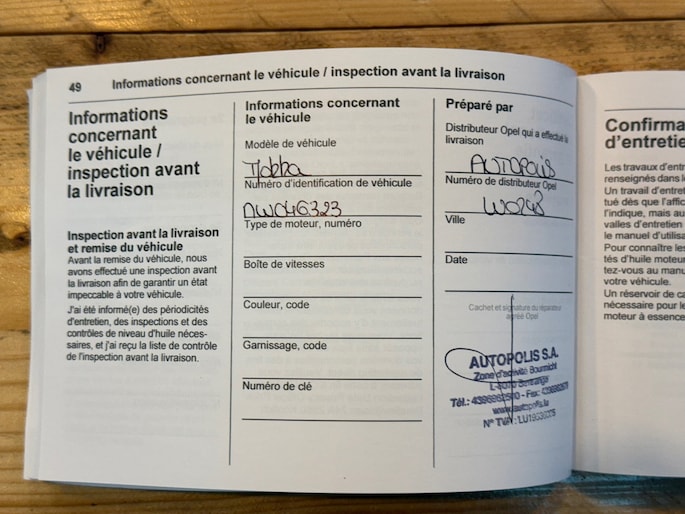 49 Informations concernant le véhicule / inspection avant la livraison
Informations
concernant
le véhicule /
inspection avant
la livraison
Inspection avant la livraison
et remise du véhicule
Avant la remise du véhicule, nous
avons effectué une inspection avant
la livraison afin de garantir un état
impeccable à votre véhicule.
J'ai été informé(e) des périodicités
d'entretien, des inspections et des
contrôles de niveau d'huile néces-
saires, et j'ai reçu la liste de contrôle
de l'inspection avant la livraison.
Informations concernant
le véhicule
Modèle de véhicule
Mokka
Numéro d'identification de véhicule
NW046323
Type de moteur, numéro
Boîte de vitesses
Couleur, code
Garnissage, code
Numéro de clé
Préparé par
Distributeur Opel qui a effectué la
livraison
AUTOPOLIS
Numéro de distributeur Opel
W0248
Ville
Date
Cachet et signature du réparateur
agréé Opel
AUTOPOLIS S.A.
Zone d'activité Bourmicht
L-8070 Bertrange
Tél.: - Fax:
www.autopolis.lu
N° TVA: LU
Confirma
d'entretie
Les travaux d'entr
renseignés dans l
Un travail d'entret
tué dès que l'affic
l'indique, mais au
valles d'entretien
le manuel d'utilisa
Pour connaître les
tés d'huile moteur
tez-vous au manu
votre véhicule.
Un réservoir de ca
nécessaire pour le
moteur à essence